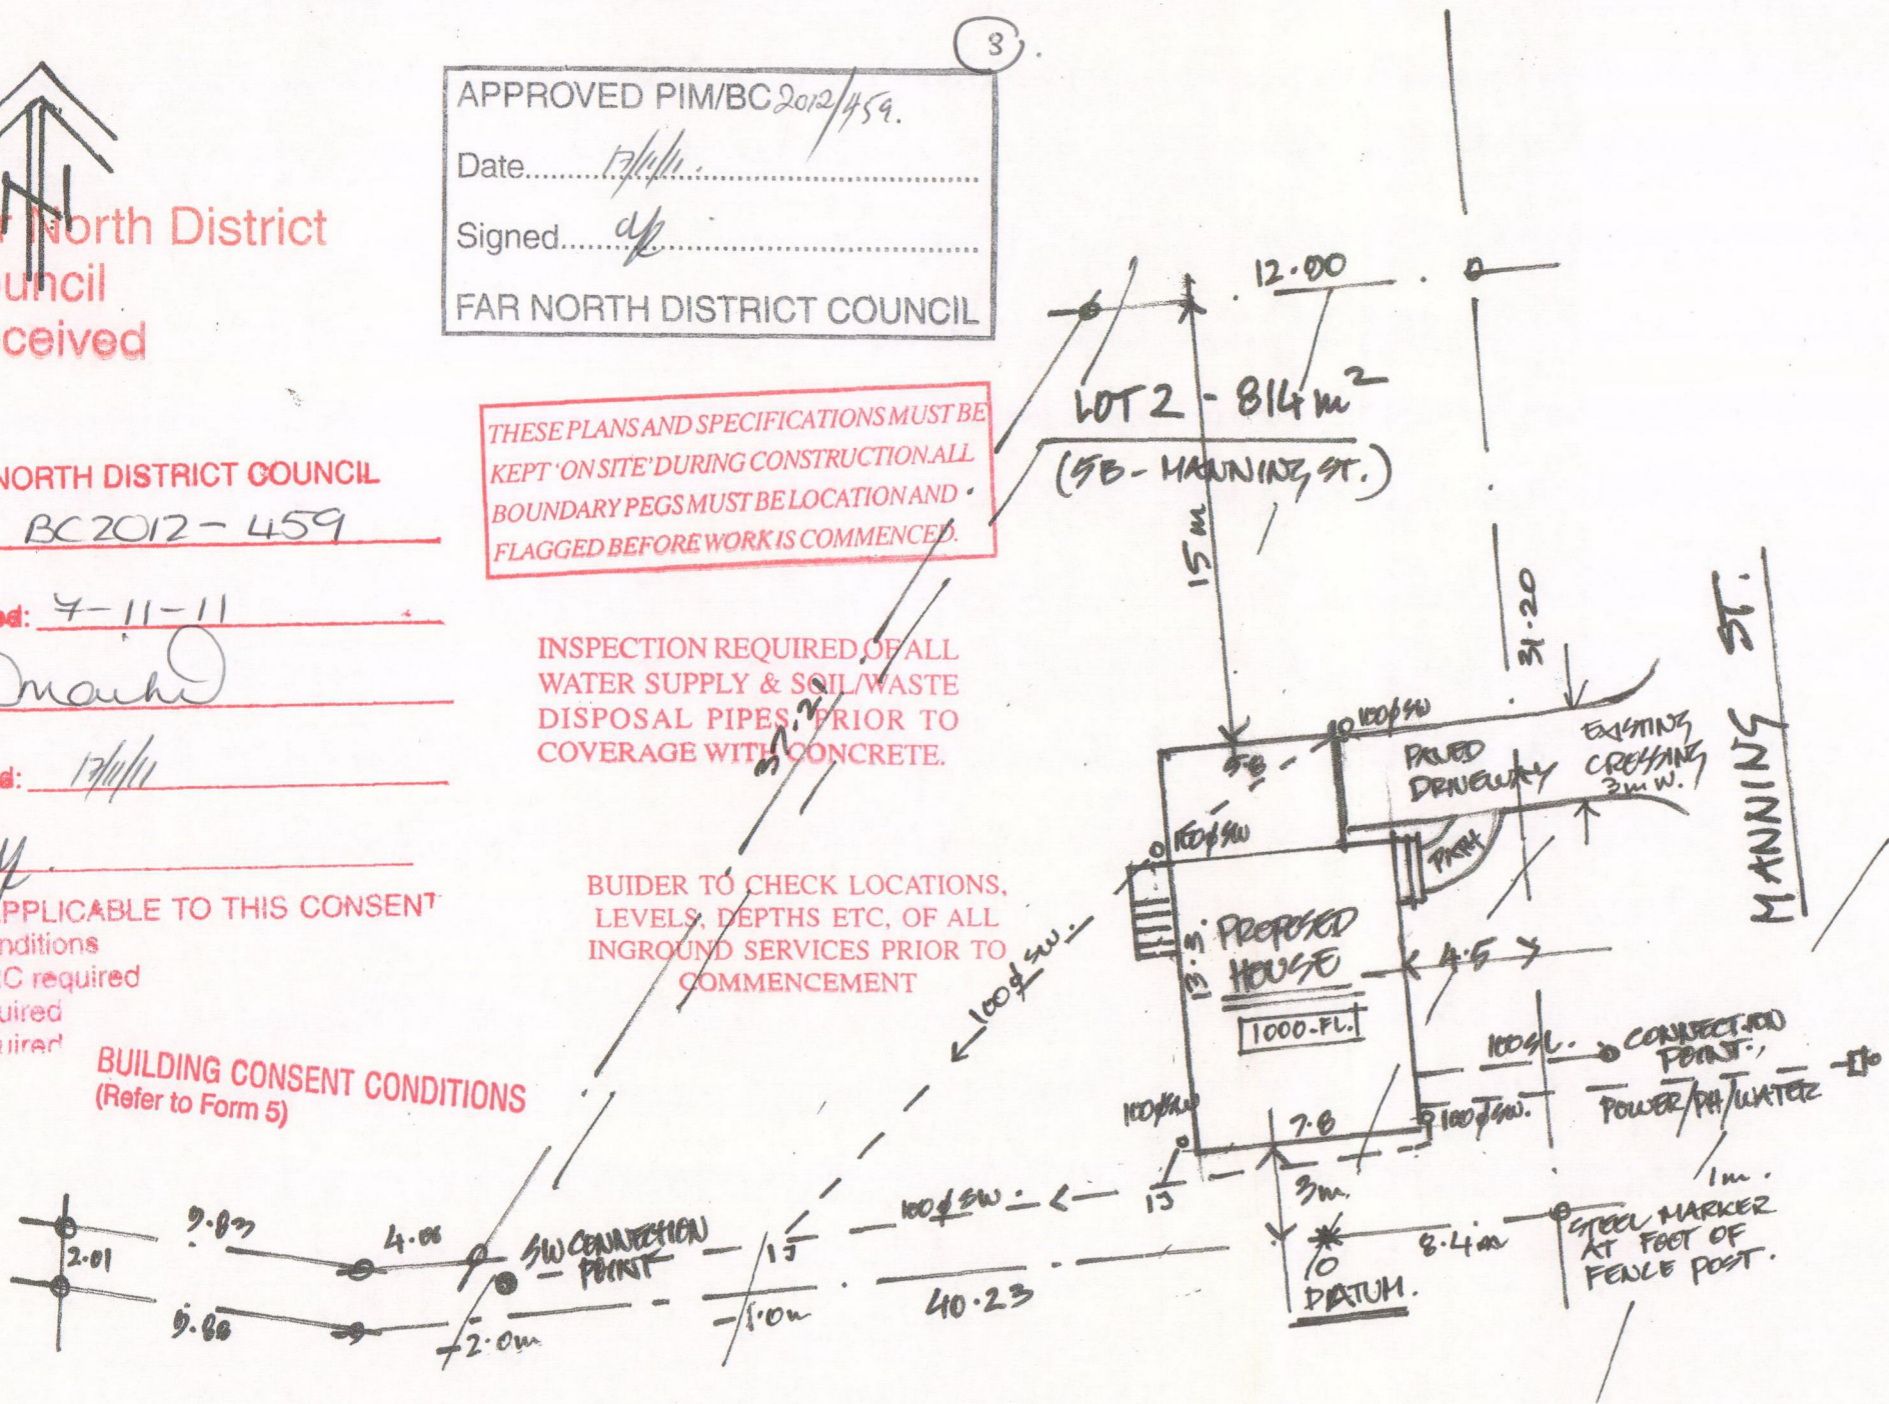 8
APPROVED PIM/BC 2012/459.
Date 17/11/11.
Signed
FAR NORTH DISTRICT COUNCIL
N
r North District
ouncil
ceived
NORTH DISTRICT COUNCIL
BC2012-459
ed: 7-11-11
d: 17/11/11
APPLICABLE TO THIS CONSENT
nditions
C required
uired
uired
BUILDING CONSENT CONDITIONS
(Refer to Form 5)
THESE PLANS AND SPECIFICATIONS MUST BE
KEPT 'ON SITE' DURING CONSTRUCTION. ALL
BOUNDARY PEGS MUST BE LOCATION AND
FLAGGED BEFORE WORK IS COMMENCED.
INSPECTION REQUIRED OF ALL
WATER SUPPLY & SOIL/WASTE
DISPOSAL PIPES PRIOR TO
COVERAGE WITH CONCRETE.
BUIDER TO CHECK LOCATIONS,
LEVELS, DEPTHS ETC, OF ALL
INGROUND SERVICES PRIOR TO
COMMENCEMENT
12.00
LOT 2 - 814 m²
(5B - MANNING ST.)
15 m
31.20
37.21
MANNING ST.
100ø SW
5.8
PAVED
DRIVEWAY
EXISTING
CROSSING
3m W.
100ø SW
PATH
PROPOSED
HOUSE
1000.FL.
13.3
4.5
100ø SW.
100 SL.
CONNECTION
POINT.
POWER/PH/WATER
100ø SW
7.8
100ø SW.
1m.
3m.
100ø SW.
IJ
IJ
STEEL MARKER
AT FOOT OF
FENCE POST.
8.4m
O
DATUM.
9.83
4.08
2.01
SW CONNECTION
POINT
9.88
-2.0m
-1.0m
40.23